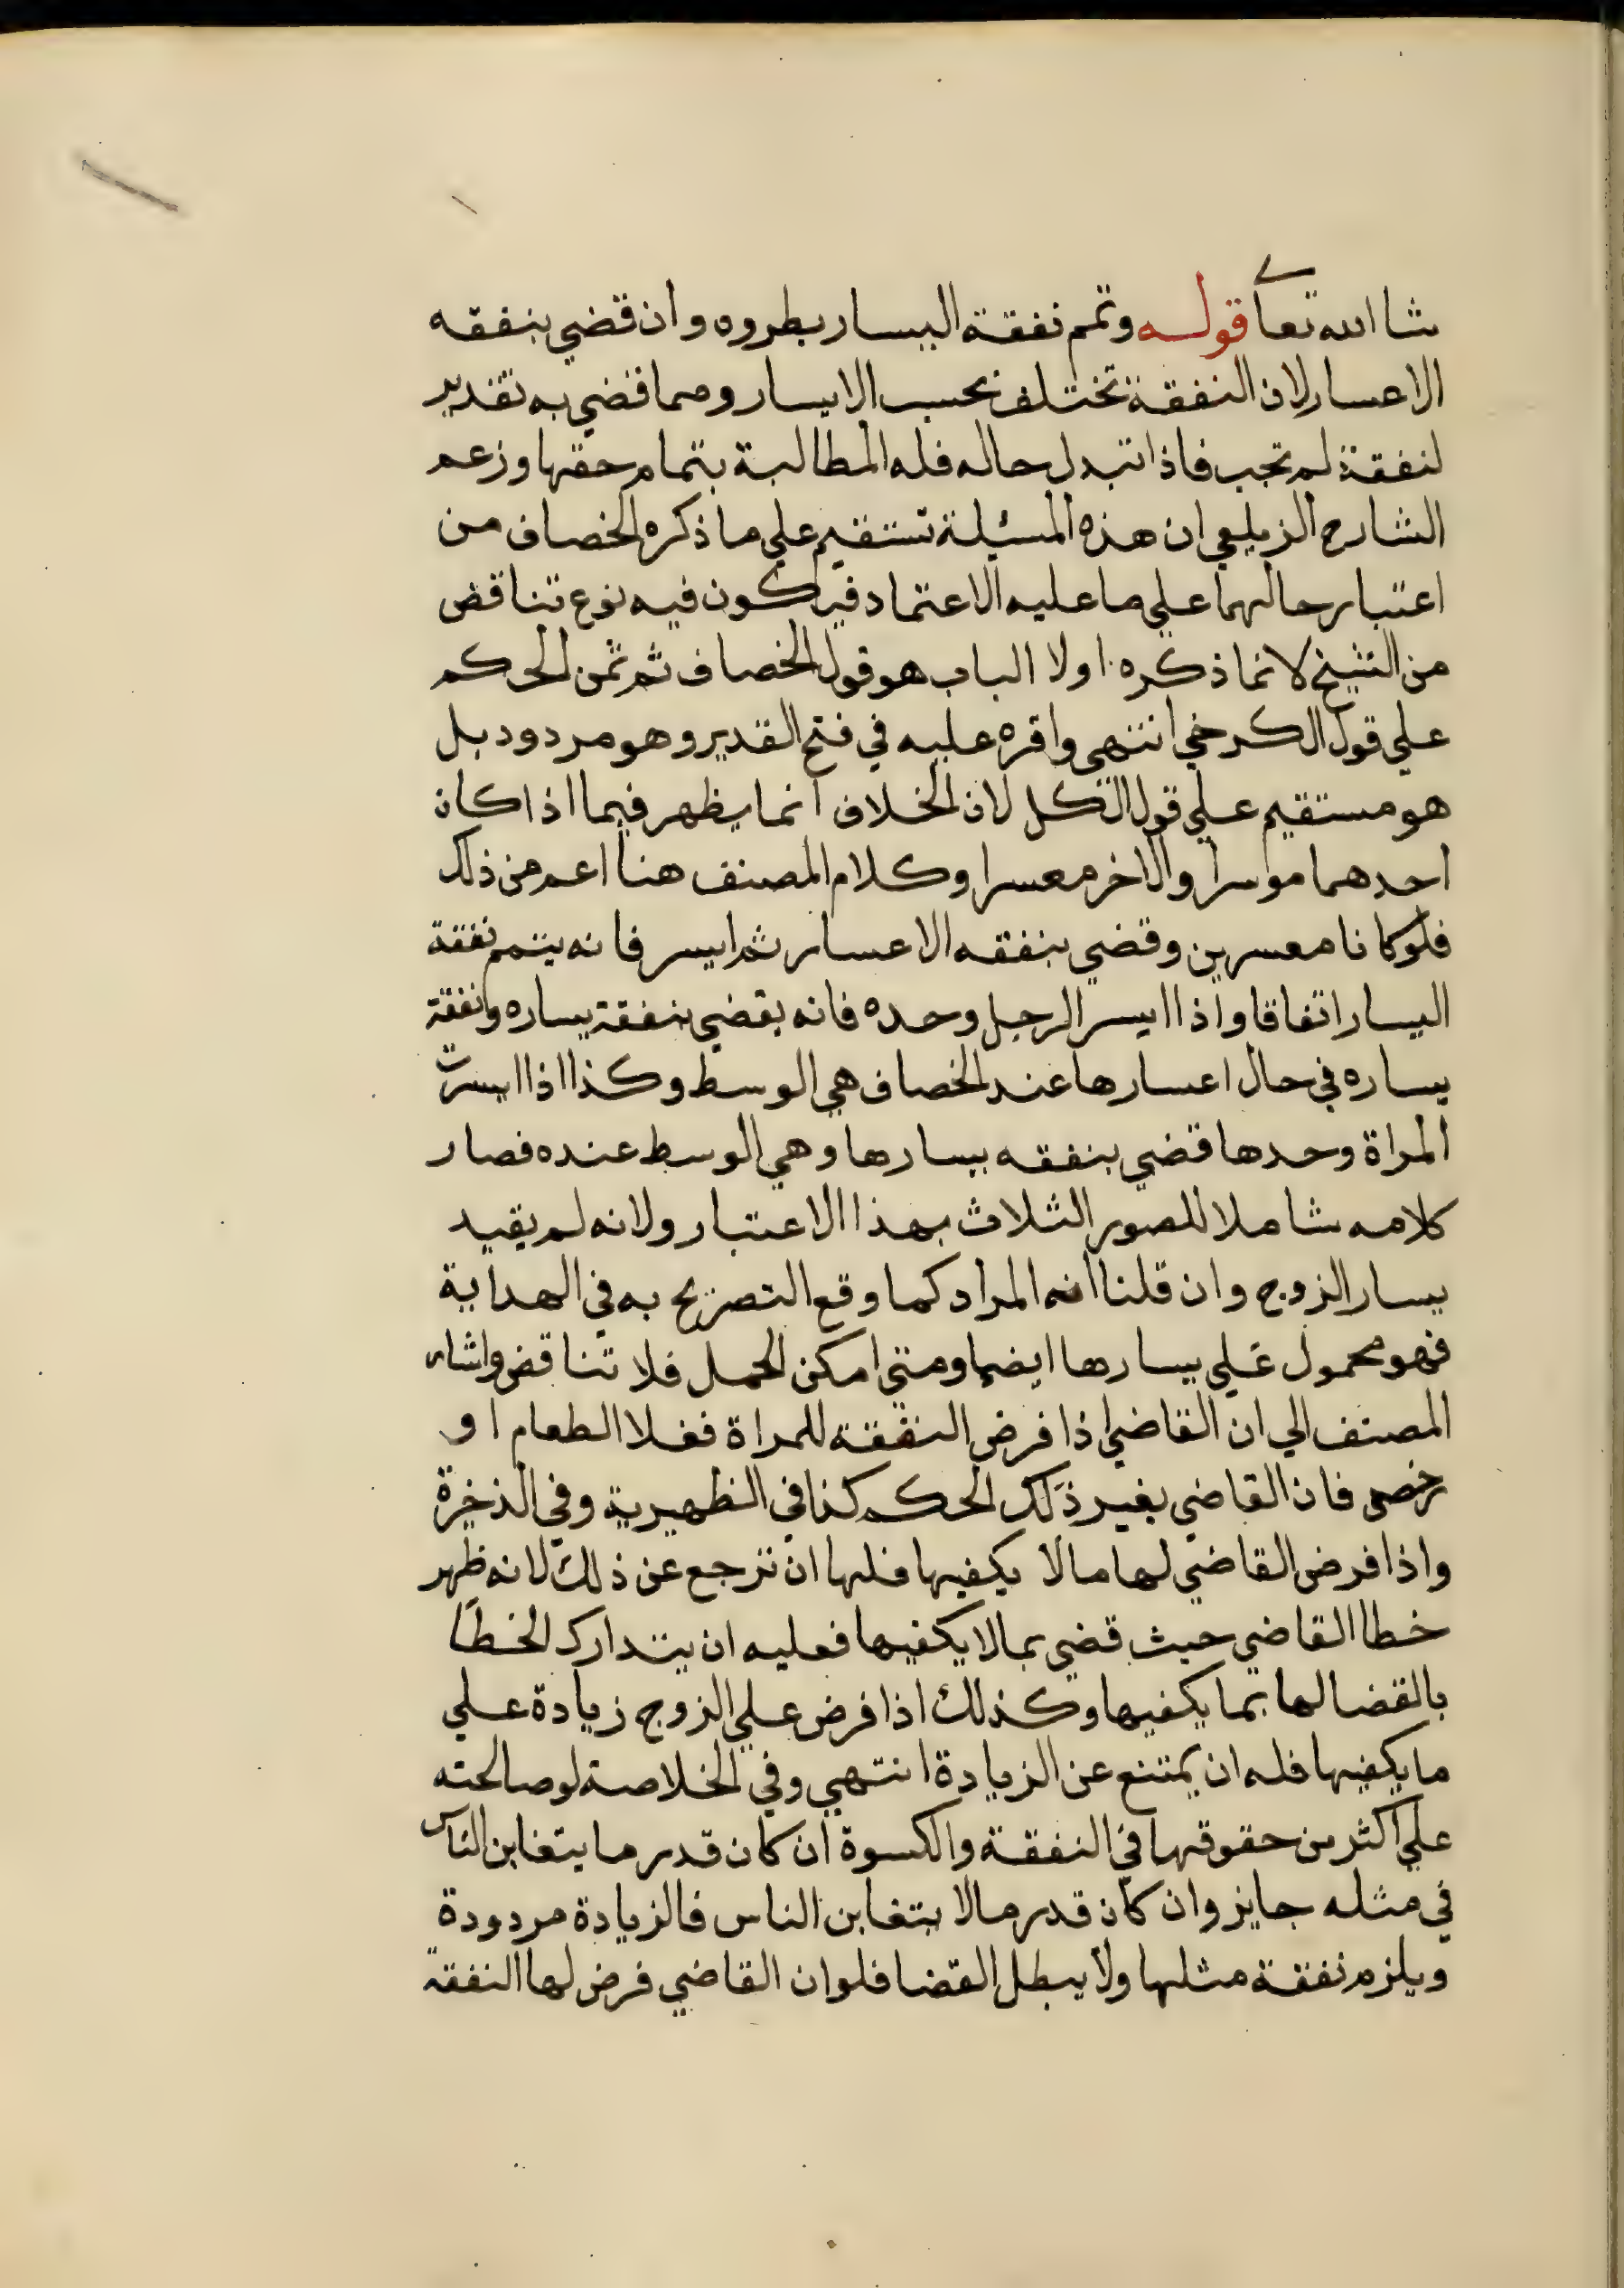 شا الله تعالى قوله وتمم نفقة اليسار بطروه وان قضي بنفقه
الاعسار لان النفقة تختلف بحسب الايسار وصما قضي به تقدير
لنفقة لم تجب فاذا تبدل حاله فله المطالبة بتمام حقها وزعم
الشارح الزيلعي ان هذه المسئيلة تستقيم علي ما ذكره الخصاف من
اعتبار حالهما علي ما عليه الاعتماد فيكون فيه نوع تناقض
من الشيخ لانما ذكره اولا الباب هو قول الخصاف ثم تمن الحكم
علي قول الكرخي انتهى واقره عليه في فتح القدير وهو مردود بل
هو مستقيم علي قول الكل لان الخلاف انما يظهر فيما اذا كان
احدهما موسرا والاخر معسرا وكلام المصنف هنا اعم من ذلك
فلو كانا معسرين وقضي بنفقه الاعسار ثم ايسر فانه يتمم نفقة
اليسار اتفاقا واذا ايسر الرجل وحده فانه يقضي بنفقة يساره ونفقة
يساره في حال اعسارها عند الخصاف هي الوسط وكذا اذا ايسرت
المراة وحدها قضي بنفقه يسارها وهي الوسط عنده فصار
كلامه شاملا للصور الثلاث بهذا الاعتبار ولانه لم يقيد
يسار الزوج وان قلنا انه المراد كما وقع التصريح به في الهداية
فهو محمول علي يسارها ايضا ومتي امكن الحمل فلا تناقض واشار
المصنف الي ان القاضي اذا فرض النفقة للمراة فغلا الطعام او
رخص فان القاضي يغير ذلك الحكم كذا في الظهيرية وفي الذخيرة
واذا فرض القاضي لها مالا يكفيها فلها ان ترجع عن ذلك لانه ظهر
خطا القاضي حيث قضي بمالا يكفيها فعليه ان يتدارك الخطا
بالقضا لها بما يكفيها وكذلك اذا فرض علي الزوج زيادة علي
ما يكفيها فله ان يمتنع عن الزيادة انتهي وفي الخلاصة لو صالحته
علي اكثر من حقوقها في النفقة والكسوة ان كان قدر ما يتغابن الناس
في مثله جايز وان كان قدر مالا يتغابن الناس فالزيادة مردودة
ويلزم نفقة مثلها ولا يبطل القضا فلو ان القاضي فرض لها النفقة